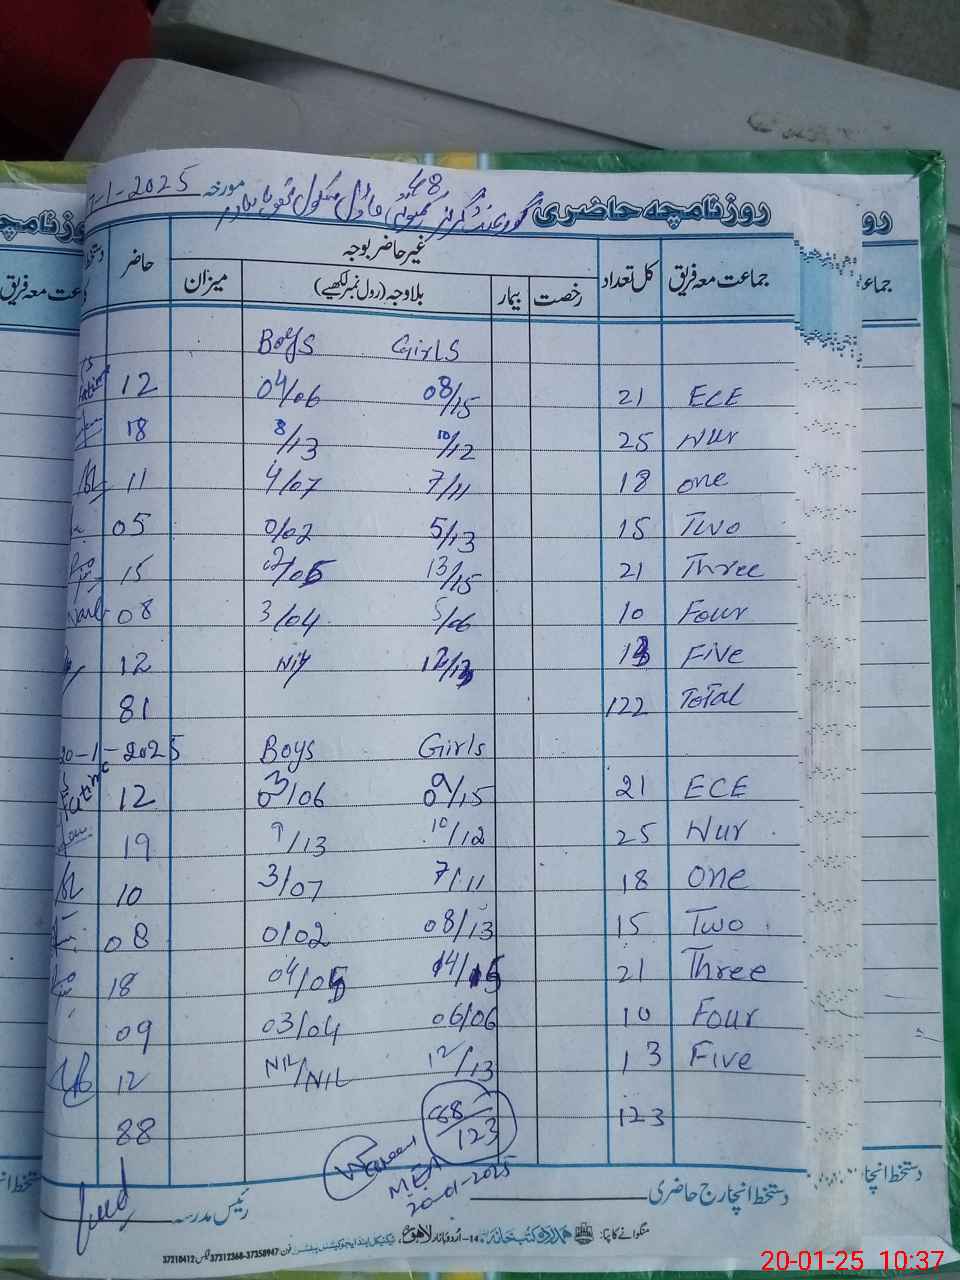 روزنامچہ حاضری گورنمنٹ گرلز کمیونٹی ماڈل سکول 48 مورخہ 1-2025
جماعت معہ فریق کل تعداد غیر حاضر بوجہ حاضر
رخصت بیمار بلاوجہ (رول نمبر لکھیے) میزان
Boys Girls
12 04/06 08/15 21 ECE
18 8/13 10/12 25 Nur
11 4/07 7/11 18 one
05 0/02 5/13 15 Two
15 02/05 13/15 21 Three
08 3/04 5/06 10 Four
12 Nil 12/13 13 Five
81 122 Total
20-1-2025 Boys Girls
12 03/06 09/15 21 ECE
19 9/13 10/12 25 Nur
10 3/07 7/11 18 one
08 0/02 08/13 15 Two
18 04/05 14/15 21 Three
09 03/04 06/06 10 Four
12 NIL/NIL 12/13 13 Five
88 88/123 123
MEA
20-01-2025
دستخط انچارج حاضری رئیس مدرسہ
منگوانے کا پتہ: ہمدرد کتب خانہ 14-اردو بازار لاہور
37310412 37312368-37358947 فون
20-01-25 10:37